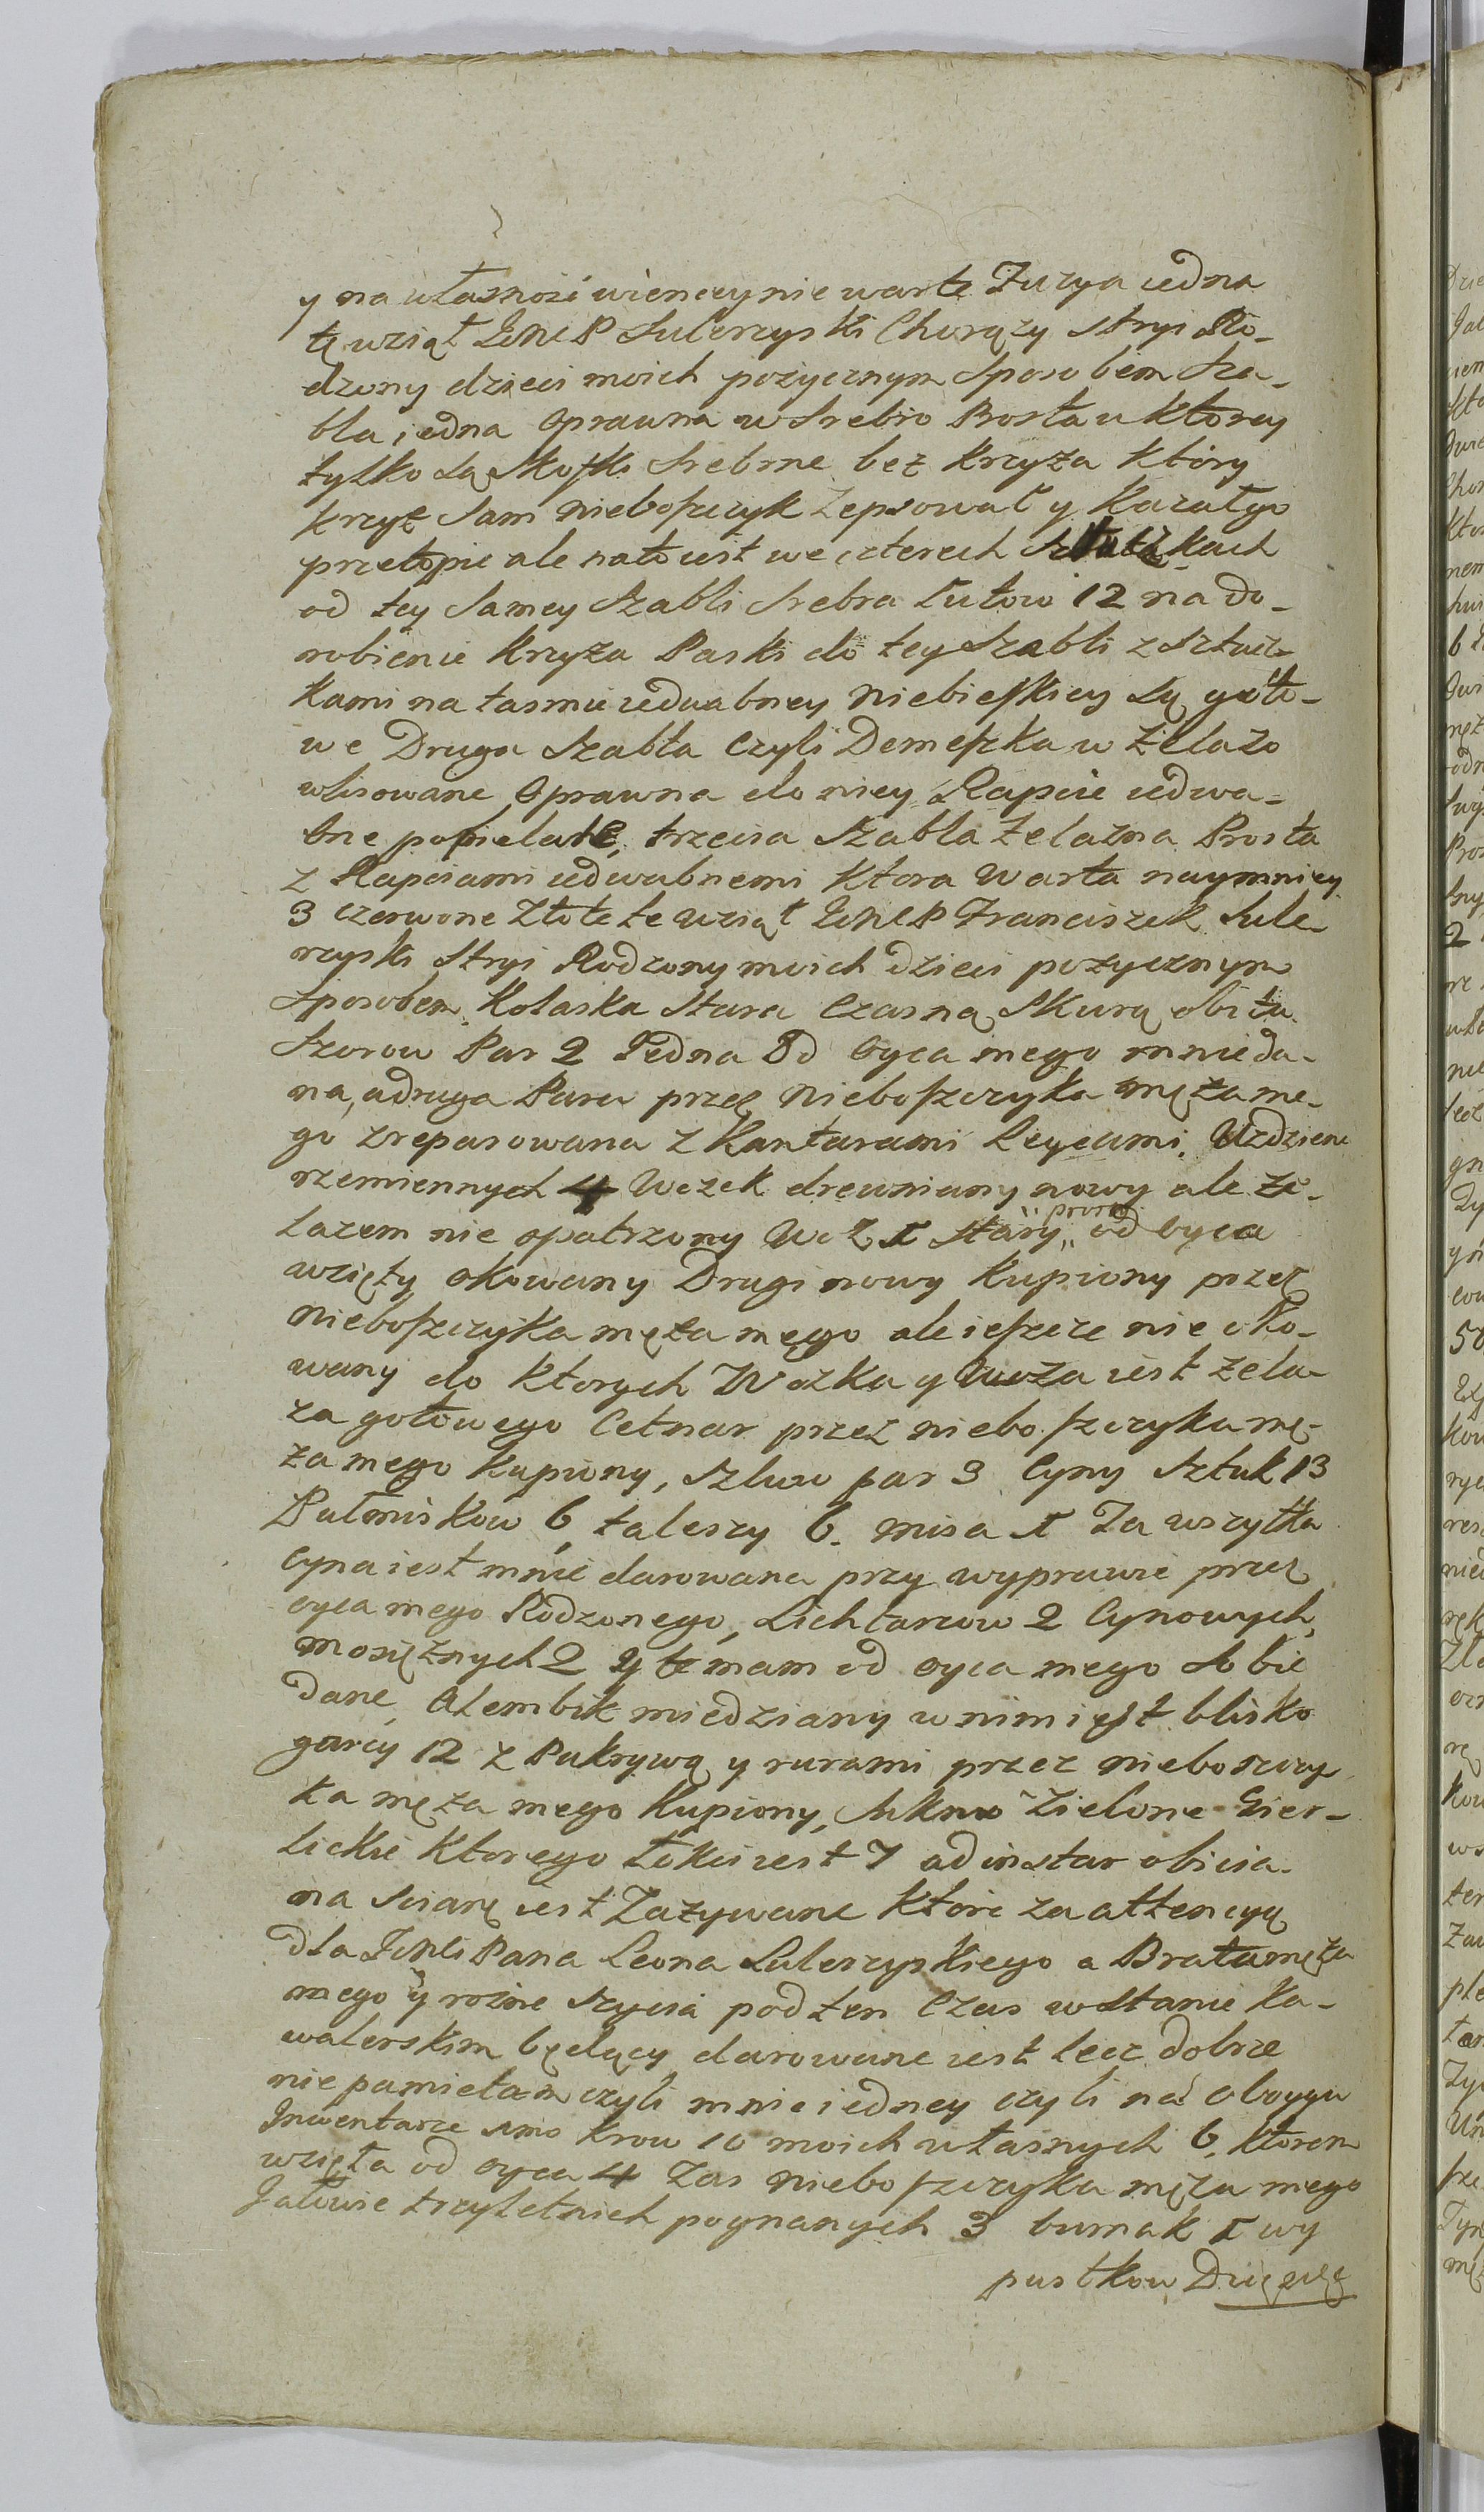 y na własnosć wiencey nie warte Fuzya iedna
tę wziął JchMć P Sulerzyski Chorąży Stryi Ro-
dzony dzieci moich pożycznym Sposobem Sza-
bla iedna oprawna w Srebro Prosta u ktorey
tylko są Skofki Srebrne bez krzyża ktory
krzyż Sam nieboszczyk Zepsował y kazał go
przetopic ale na to iest we czterech Sztuczkach
od tey Samey Szabli Srebra łutow 12 na do-
robienie krzyża Paski do tey Szabli z Sztucz-
kami na tasmie iedwabney niebieskiey są goto-
we Druga Szabla czyli Demeszka w żelazo
oprawna do niey Rapcie iedwa-
bne popielate, trzecia Szabla żelazna Prosta
z Rapciami iedwabnemi ktora warta naymniey
3 czerwone Złote te wziął JchMć P Franciszek Sule-
rzyski Stryi Rodzony moich dzieci pożycznym
Sposobem. Kolaska Stara Czarną Skurą obita
Szorow Par 2 Jedna Od Oyca mego mnie da-
na, a druga Para przez nieboszczyka męża me-
go zreparowana z Kantarami Leycami. Uzdzien
rzemiennych 4 Wozek drewniany nowy ale że-
lazem nie opatrzony Woz 1 Stary od oyca
wzięty okowany Drugi nowy kupiony przez
nieboszczyka męża mego ale ieszcze nie oko-
wany do ktorych Wozka y Woza iest żela-
za gotowego Cetnar przez nieboszczyka mę-
ża mego kupiony, Szluw par 3 Cyny Sztuk 13
Pułmiskow 6, talerzy 6. misa 1 Ta wszytka
Cyna iest mnie darowana przy wyprawie przez
oyca mego Rodzonego, Lichtarzow 2 Cynowych,
mosiężnych 2 y te mam od oyca mego Sobie
dane, Alembik miedziany w nim iest blisko
garcy 12 z Pukrywą y rurami przez nieboszczy
ka męża mego kupiony, Sukno Zielone Gier-
lickie ktorego łokci iest 7 ad instar obicia
na scianę iest Zażywane ktore za attencyą
dla JchMći Pana Leona Sulerzyskiego a Brata męża
mego y rożne Szycia pod ten Czas w Stanie ka-
walerskim będący darowane iest lecz dobrze
nie pamietam czyli mnie iedney czyli nas oboygu
Inwentarze imo krow 10 moich własnych 6, ktorem
wzieła od oyca 4 Zas nieboszczyka męża mego
Jałowie trzyletnich pognanych 3 bumak 1 wy
pustkow Dwięwie